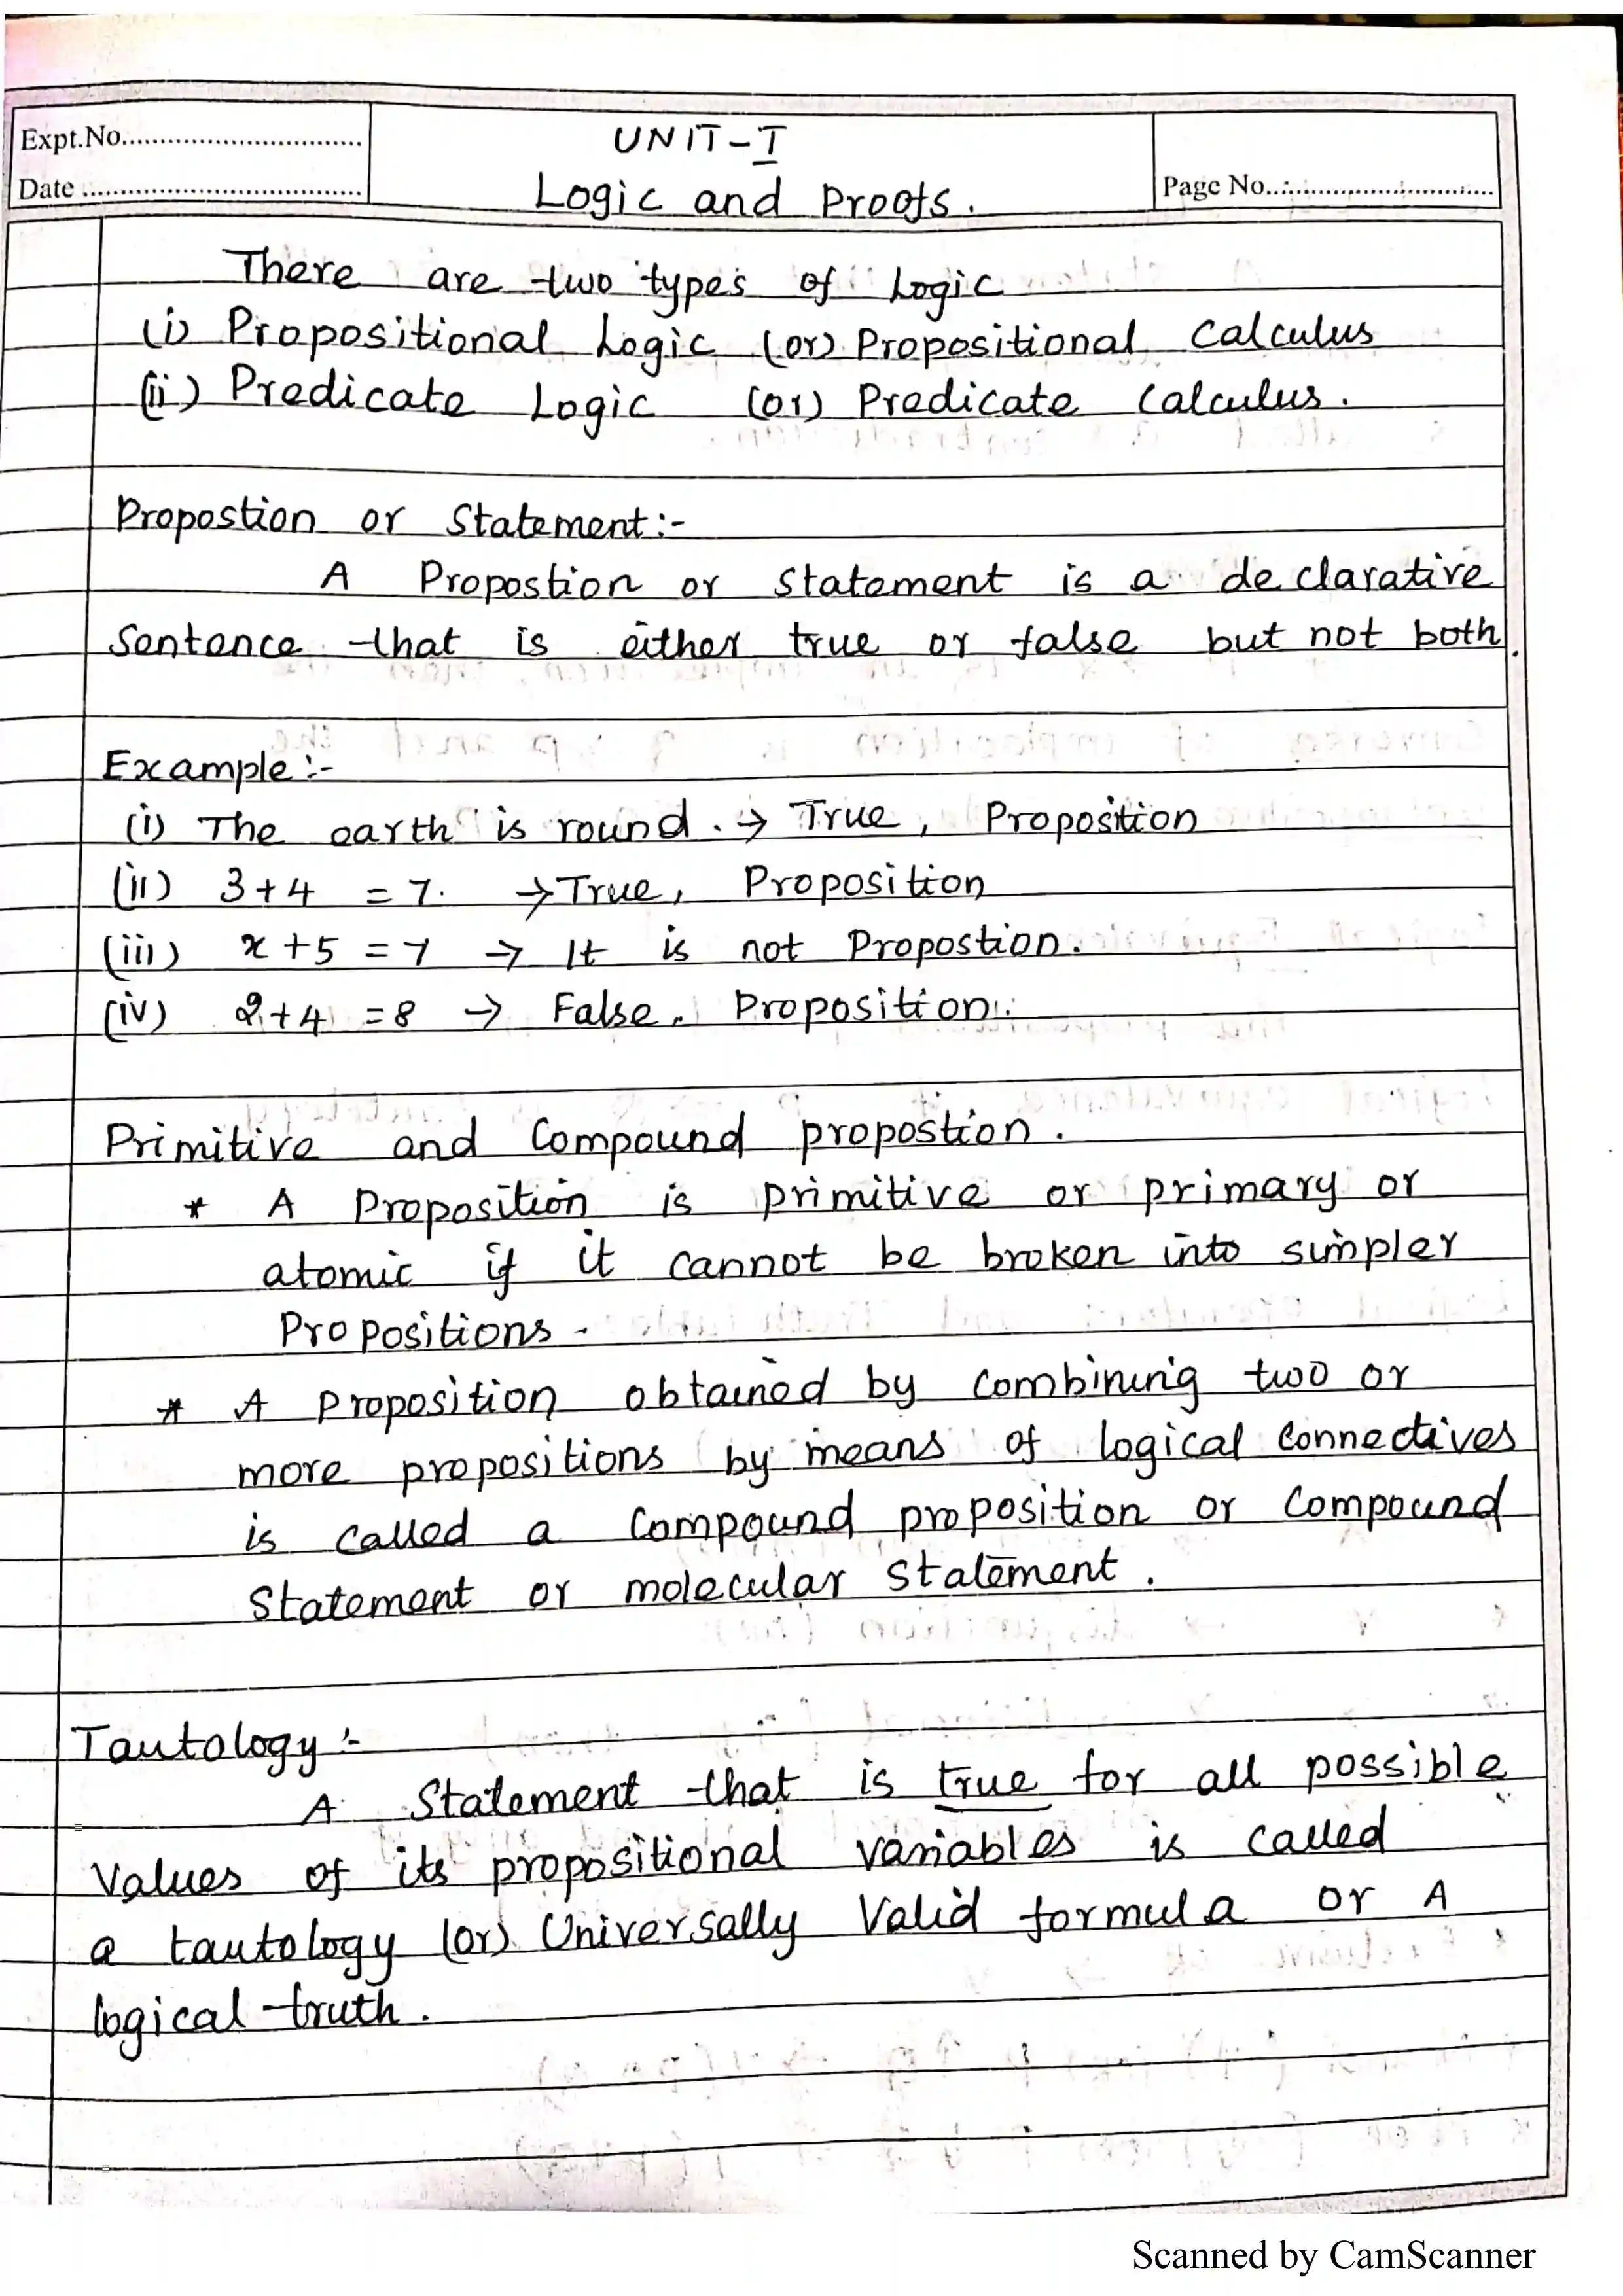 Expt.No..............................
Date ...................................
UNIT-I
Logic and Proofs.
Page No.............................
There are two types of Logic
(i) Propositional Logic (or) Propositional Calculus
(ii) Predicate Logic (or) Predicate Calculus.
Propostion or Statement:-
A Propostion or Statement is a declarative
Sentence that is either true or false but not both.
Example:-
(i) The earth is round. → True, Proposition
(ii) 3+4 = 7. → True, Proposition
(iii) x+5 = 7 → It is not Propostion.
(iv) 2+4 = 8 → False. Proposition.
Primitive and Compound propostion.
* A Proposition is primitive or primary or
atomic if it cannot be broken into simpler
Propositions.
* A proposition obtained by combining two or
more propositions by means of logical Connectives
is called a Compound proposition or Compound
Statement or molecular Statement.
Tautology:-
A Statement that is true for all possible
Values of its propositional variables is called
a tautology (or) Universally Valid formula or A
logical truth.
Scanned by CamScanner